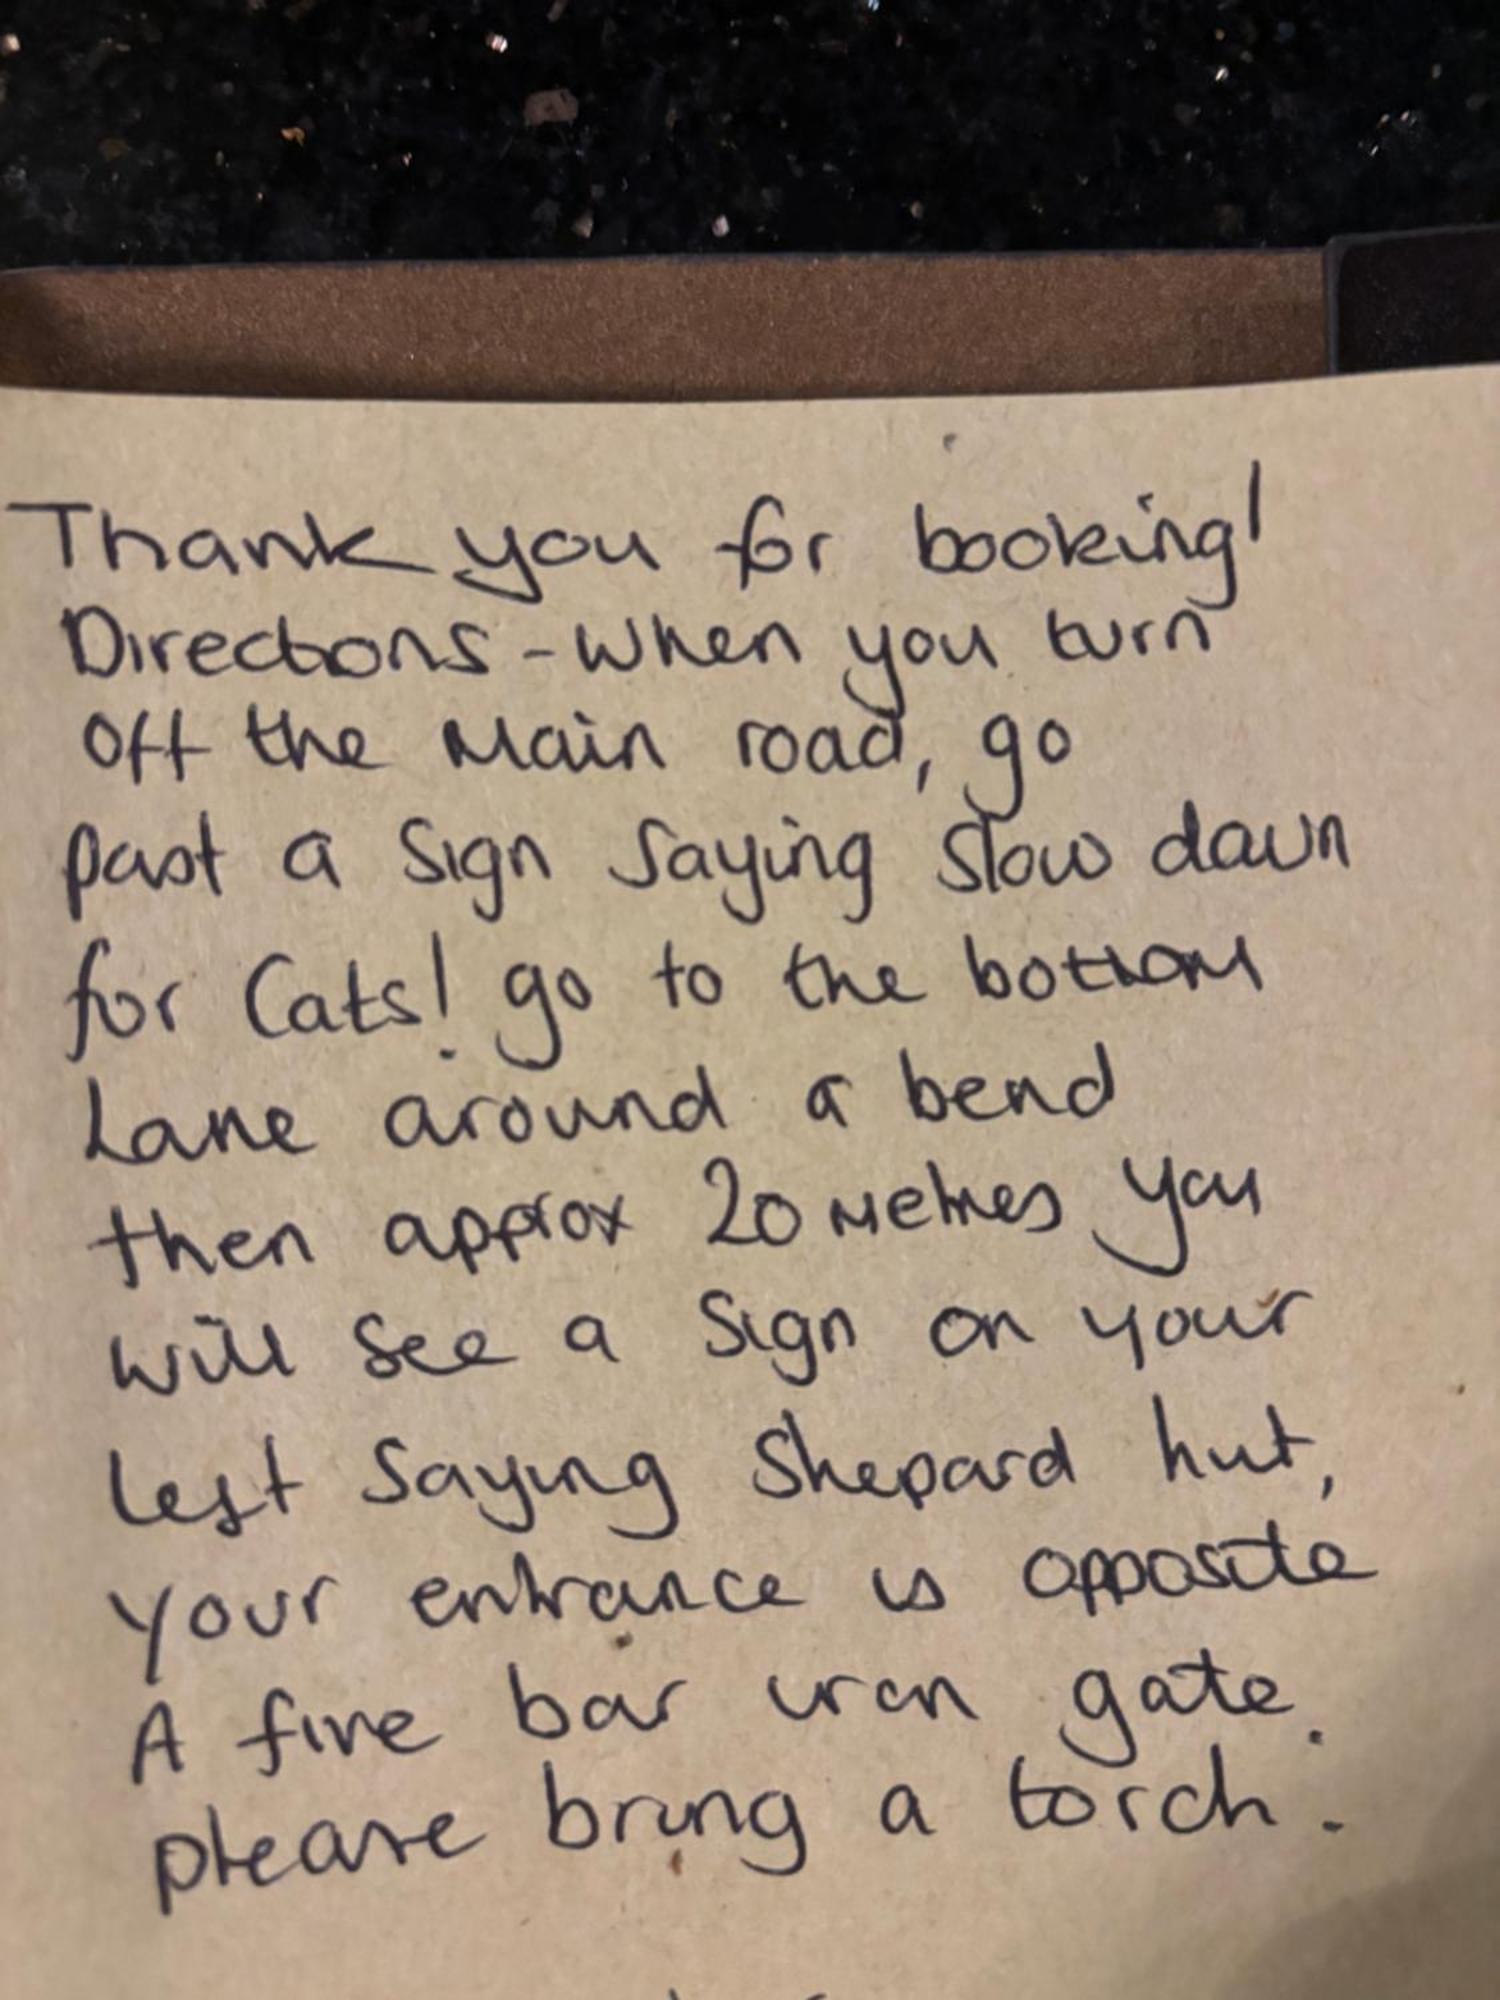 Thank you for booking!
Directions - When you turn
off the Main road, go
past a Sign Saying Slow down
for Cats! go to the bottom
Lane around a bend
then approx 20 Metres you
will see a Sign on your
left Saying Shepard hut,
your entrance is opposite
A five bar iron gate.
please bring a torch.